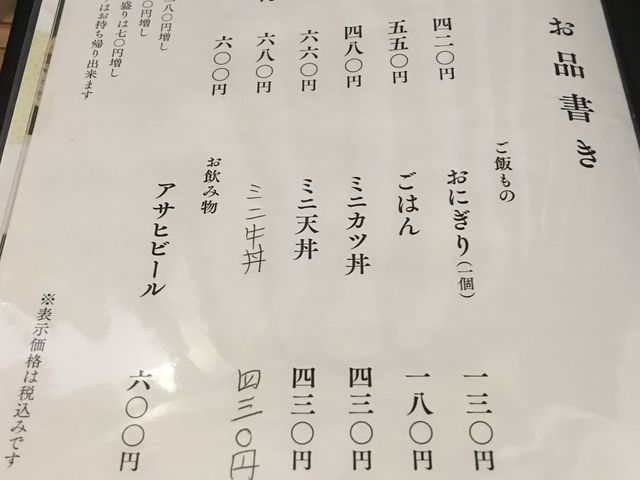 お品書き
四二〇円
五五〇円
四八〇円
六六〇円
六八〇円
六〇〇円
八〇円増し
〇円増し
盛りは七〇円増し
はお持ち帰り出来ます
ご飯もの
おにぎり(一個) 一三〇円
ごはん 一八〇円
ミニカツ丼 四三〇円
ミニ天丼 四三〇円
ミニ牛丼 四三〇円
お飲み物
アサヒビール 六〇〇円
※表示価格は税込みです